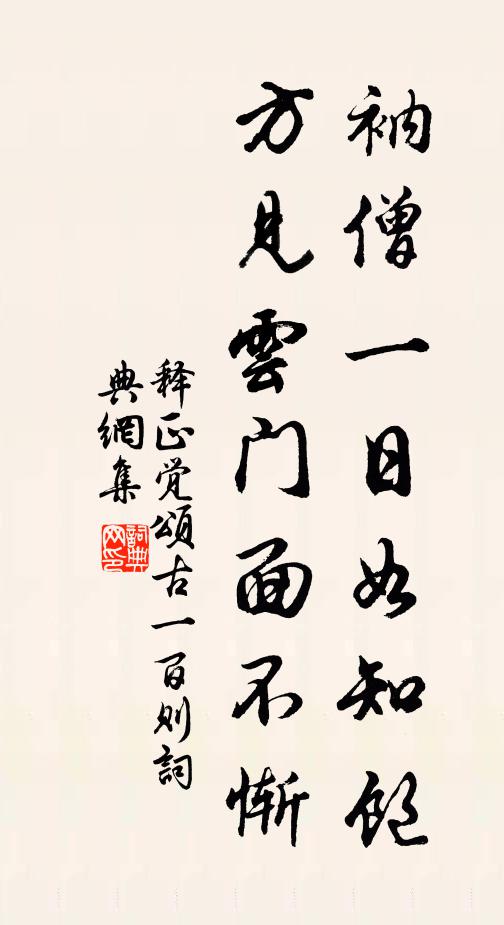 衲僧一日如知飽
方見雲门面不慚
释正觉頌古一百则詞
典網集
詞典网印